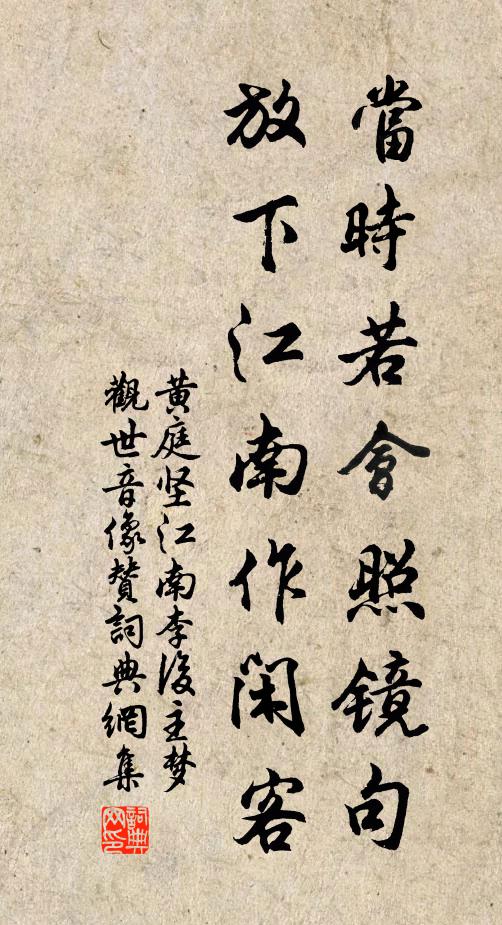 當時若會照镜句
放下江南作閑客
黄庭坚江南李後主梦
觀世音像賛詞典網集
詞典网印